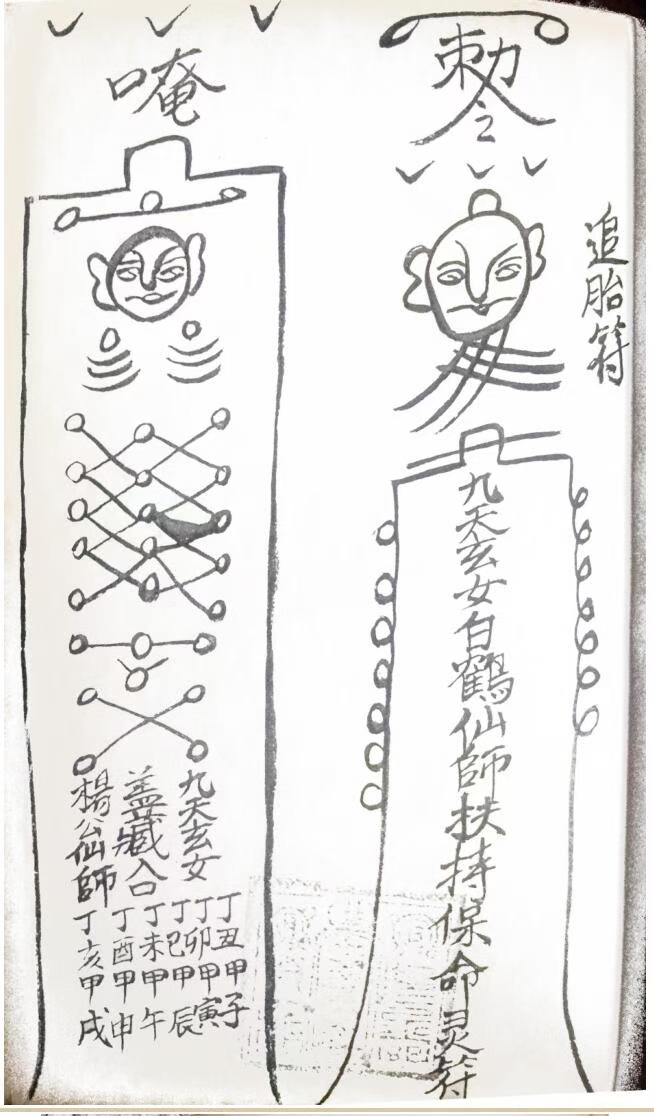 追胎符
勅令
九天玄女白鶴仙師扶持保命灵符
唵
九天玄女
蓋藏入口
楊公仙師
丁丑甲子
丁卯甲寅
丁巳甲辰
丁未甲午
丁酉甲申
丁亥甲戌